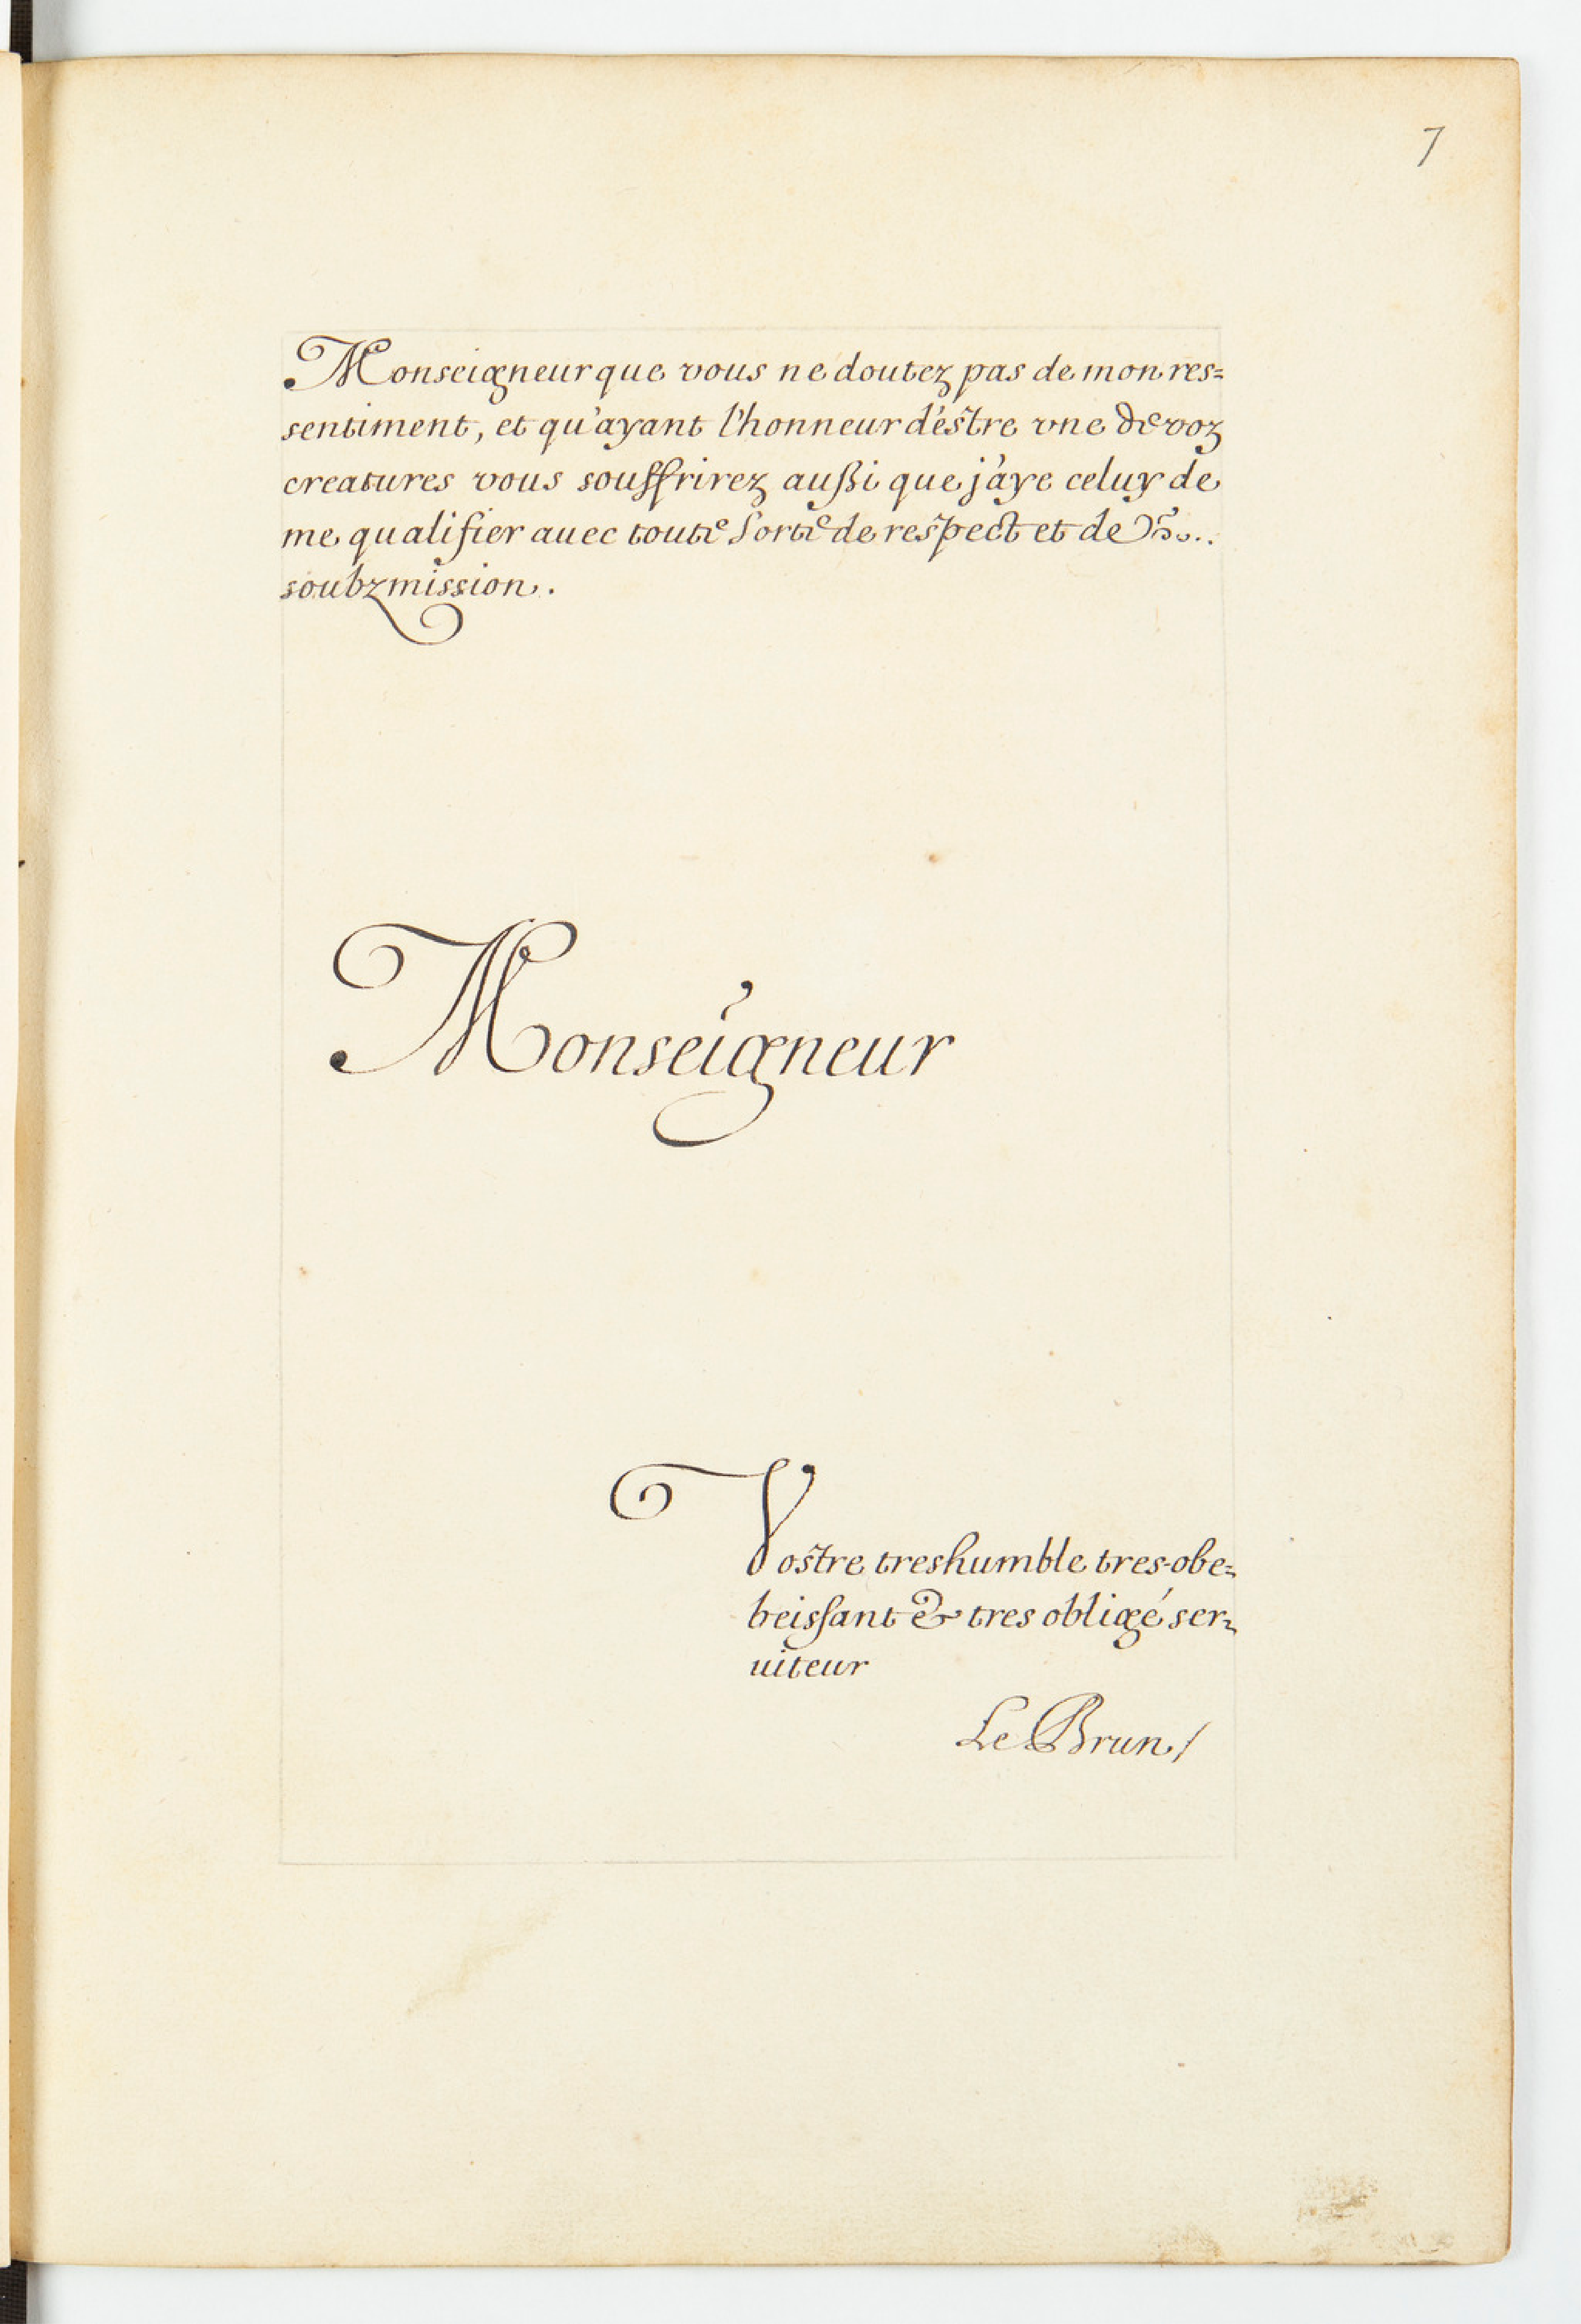 7
Monseigneur que vous ne doutez pas de mon res=
sentiment, et qu'ayant l'honneur d'estre vne de voz
creatures vous souffrirez außi que j'aye celuy de
me qualifier auec toute sorte de respect et de
soubzmission.
Monseigneur
Vostre treshumble tres-obe=
beissant & tres obligé ser=
uiteur
Le Brun /